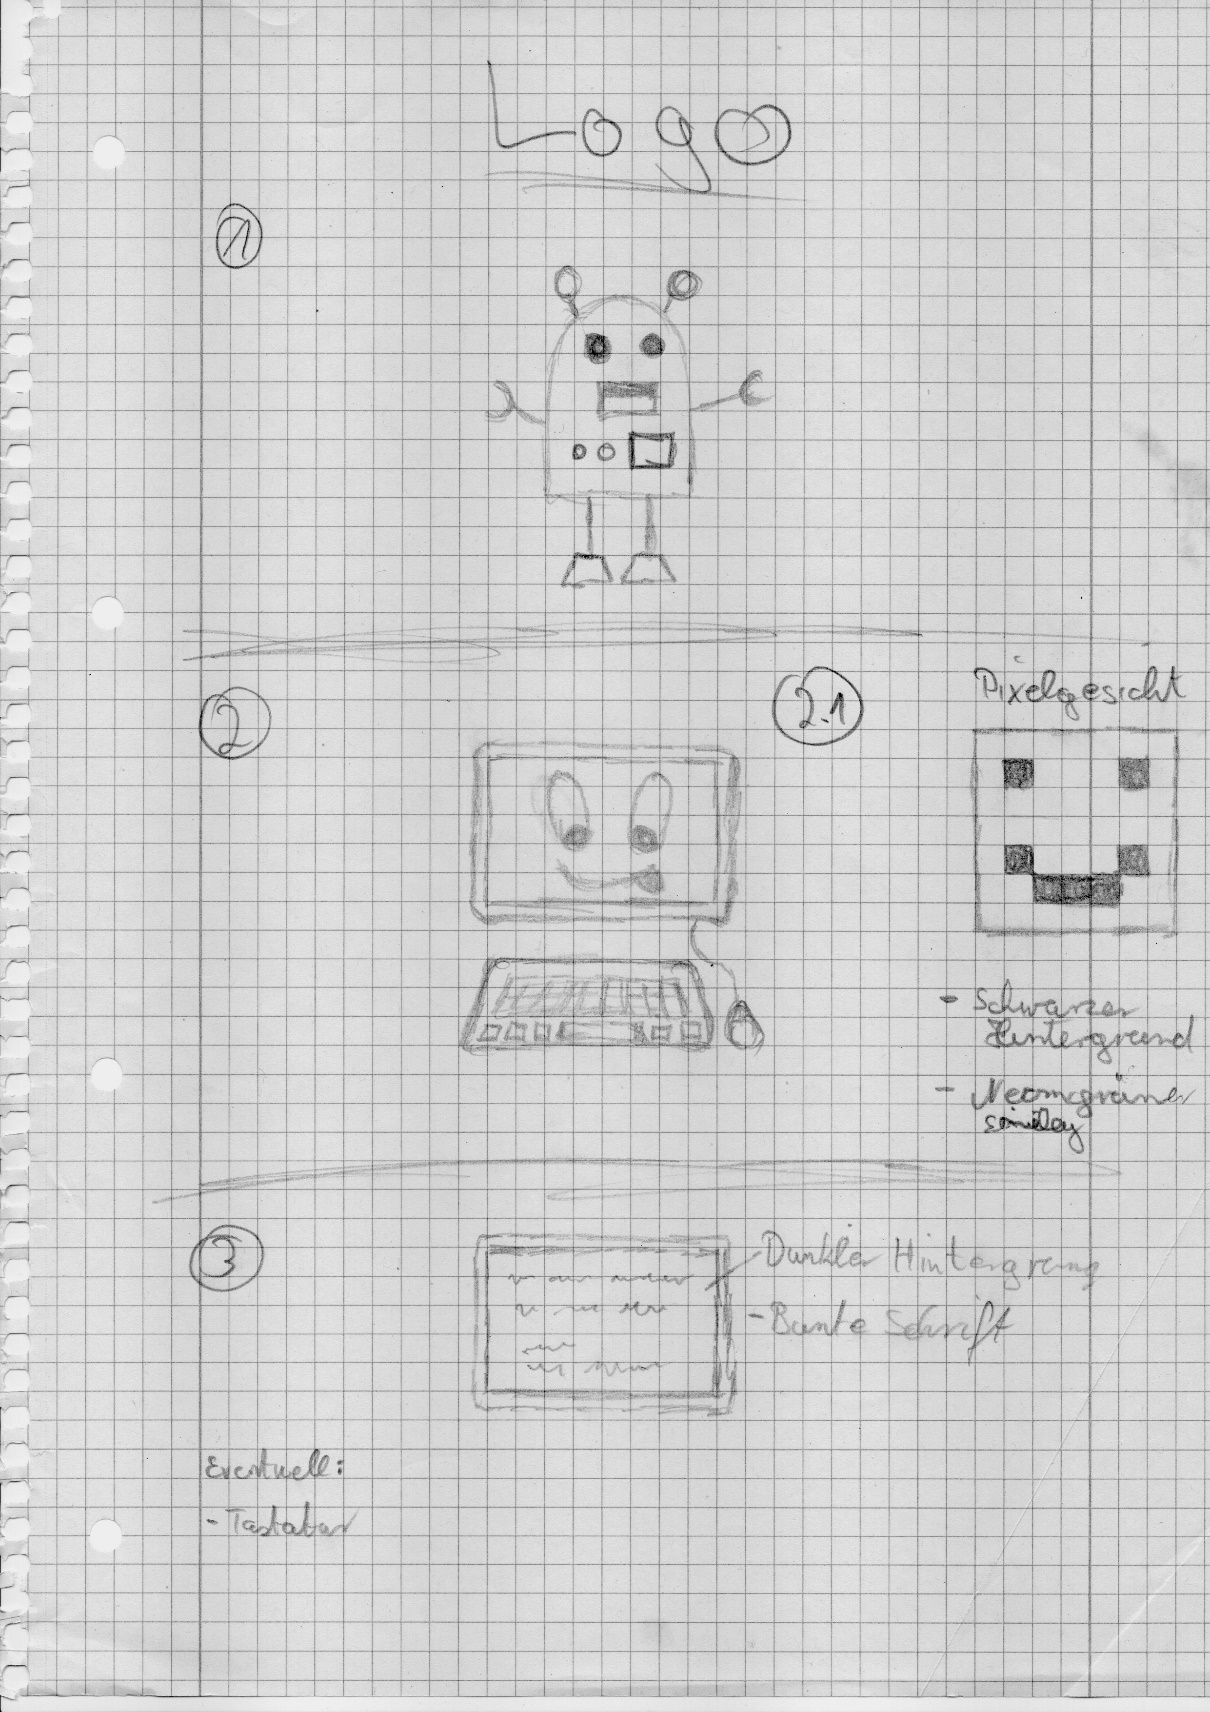 Logo
1
2
2.1
Pixelgesicht
- Schwarzer
Hintergrund
- Neongrüner
Smiley
3
Dunkler Hintergrung
- Bunte Schrift
Eventuell:
- Tastatur